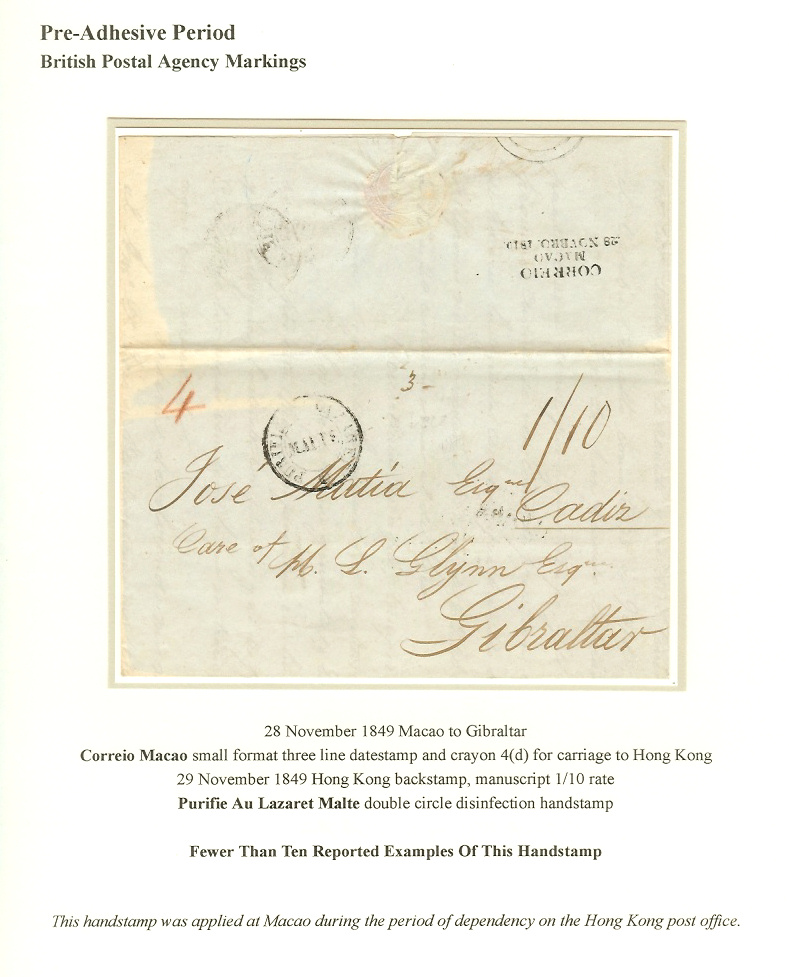 Pre-Adhesive Period
British Postal Agency Markings
CORREIO
MACAO
28 NOVBRO. 184
3-
4
1/10
José Matia Esqre
Cadiz
Care of M. L. Glynn Esqre
Gibraltar
28 November 1849 Macao to Gibraltar
Correio Macao small format three line datestamp and crayon 4(d) for carriage to Hong Kong
29 November 1849 Hong Kong backstamp, manuscript 1/10 rate
Purifie Au Lazaret Malte double circle disinfection handstamp
Fewer Than Ten Reported Examples Of This Handstamp
This handstamp was applied at Macao during the period of dependency on the Hong Kong post office.